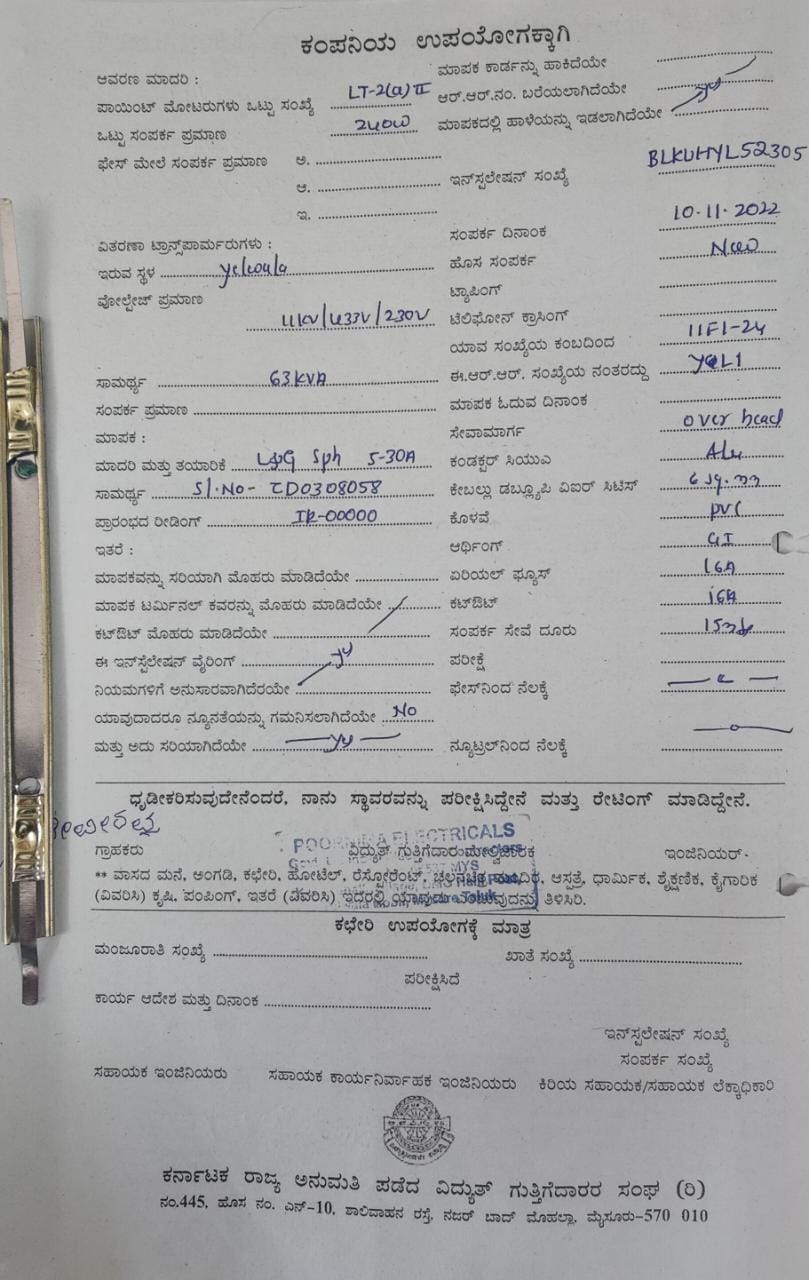 ಕಂಪನಿಯ ಉಪಯೋಗಕ್ಕಾಗಿ
ಆವರಣ ಮಾದರಿ :
ಮಾಪಕ ಕಾರ್ಡನ್ನು ಹಾಕಿದೆಯೇ
ಪಾಯಿಂಟ್ ಮೋಟರುಗಳು ಒಟ್ಟು ಸಂಖ್ಯೆ LT-2(a) II
ಆರ್.ಆರ್.ನಂ. ಬರೆಯಲಾಗಿದೆಯೇ
ಒಟ್ಟು ಸಂಪರ್ಕ ಪ್ರಮಾಣ 240W
ಮಾಪಕದಲ್ಲಿ ಹಾಳೆಯನ್ನು ಇಡಲಾಗಿದೆಯೇ
ಫೇಸ್ ಮೇಲೆ ಸಂಪರ್ಕ ಪ್ರಮಾಣ ಅ.
ಆ.
ಇನ್‌ಸ್ಟಲೇಷನ್ ಸಂಖ್ಯೆ BLKUHYL52305
ಇ.
ಸಂಪರ್ಕ ದಿನಾಂಕ 10.11.2022
ವಿತರಣಾ ಟ್ರಾನ್ಸ್‌ಪಾರ್ಮರುಗಳು :
ಹೊಸ ಸಂಪರ್ಕ New
ಇರುವ ಸ್ಥಳ Yelwala
ಟ್ಯಾಪಿಂಗ್
ವೋಲ್ಟೇಜ್ ಪ್ರಮಾಣ 11KV/433V/230V
ಟೆಲಿಫೋನ್ ಕ್ರಾಸಿಂಗ್
ಯಾವ ಸಂಖ್ಯೆಯ ಕಂಬದಿಂದ 11F1-24
ಸಾಮರ್ಥ್ಯ 63KVA
ಈ.ಆರ್.ಆರ್. ಸಂಖ್ಯೆಯ ನಂತರದ್ದು
ಸಂಪರ್ಕ ಪ್ರಮಾಣ
ಮಾಪಕ ಓದುವ ದಿನಾಂಕ
ಮಾಪಕ :
ಸೇವಾಮಾರ್ಗ over head
ಮಾದರಿ ಮತ್ತು ತಯಾರಿಕೆ L&G Sph 5-30A
ಕಂಡಕ್ಟರ್ ಸಿಯುಎ Alu
ಸಾಮರ್ಥ್ಯ Sl.No- CD0308058
ಕೇಬಲ್ಲು ಡಬ್ಲ್ಯೂಪಿ ವಿಐಆರ್ ಸಿಟಿಎಸ್ 6 sq.mm
ಪ್ರಾರಂಭದ ರೀಡಿಂಗ್ IR-00000
ಕೊಳವೆ PVC
ಇತರೆ :
ಆರ್ಥಿಂಗ್ GI
ಮಾಪಕವನ್ನು ಸರಿಯಾಗಿ ಮೊಹರು ಮಾಡಿದೆಯೇ
ಏರಿಯಲ್ ಫ್ಯೂಸ್ 16A
ಮಾಪಕ ಟರ್ಮಿನಲ್ ಕವರನ್ನು ಮೊಹರು ಮಾಡಿದೆಯೇ
ಕಟ್‌ಔಟ್ 16A
ಕಟ್‌ಔಟ್ ಮೊಹರು ಮಾಡಿದೆಯೇ
ಸಂಪರ್ಕ ಸೇವೆ ದೂರು
ಈ ಇನ್‌ಸ್ಟಲೇಷನ್ ವೈರಿಂಗ್
ಪರೀಕ್ಷೆ
ನಿಯಮಗಳಿಗೆ ಅನುಸಾರವಾಗಿದೆರಯೇ
ಫೇಸ್‌ನಿಂದ ನೆಲಕ್ಕೆ
ಯಾವುದಾದರೂ ನ್ಯೂನತೆಯನ್ನು ಗಮನಿಸಲಾಗಿದೆಯೇ No
ಮತ್ತು ಅದು ಸರಿಯಾಗಿದೆಯೇ
ನ್ಯೂಟ್ರಲ್‌ನಿಂದ ನೆಲಕ್ಕೆ
ಧೃಡೀಕರಿಸುವುದೇನೆಂದರೆ, ನಾನು ಸ್ಥಾವರವನ್ನು ಪರೀಕ್ಷಿಸಿದ್ದೇನೆ ಮತ್ತು ರೇಟಿಂಗ್ ಮಾಡಿದ್ದೇನೆ.
POORNIMA ELECTRICALS
ಗ್ರಾಹಕರು ವಿದ್ಯುತ್ ಗುತ್ತಿಗೆದಾರ ಮೇಲ್ವಿಚಾರಕ ಇಂಜಿನಿಯರ್.
** ವಾಸದ ಮನೆ, ಅಂಗಡಿ, ಕಛೇರಿ, ಹೋಟೆಲ್, ರೆಸ್ಟೋರೆಂಟ್, ಚಲನಚಿತ್ರ ಮಂದಿರ, ಆಸ್ಪತ್ರೆ, ಧಾರ್ಮಿಕ, ಶೈಕ್ಷಣಿಕ, ಕೈಗಾರಿಕೆ
(ವಿವರಿಸಿ) ಕೃಷಿ, ಪಂಪಿಂಗ್, ಇತರೆ (ವಿವರಿಸಿ) ಇದರಲ್ಲಿ ಯಾವುದು ಎಂಬುವುದನ್ನು ತಿಳಿಸಿರಿ.
ಕಛೇರಿ ಉಪಯೋಗಕ್ಕೆ ಮಾತ್ರ
ಮಂಜೂರಾತಿ ಸಂಖ್ಯೆ ಖಾತೆ ಸಂಖ್ಯೆ
ಪರೀಕ್ಷಿಸಿದೆ
ಕಾರ್ಯ ಆದೇಶ ಮತ್ತು ದಿನಾಂಕ
ಇನ್‌ಸ್ಟಲೇಷನ್ ಸಂಖ್ಯೆ
ಸಂಪರ್ಕ ಸಂಖ್ಯೆ
ಸಹಾಯಕ ಇಂಜಿನಿಯರು ಸಹಾಯಕ ಕಾರ್ಯನಿರ್ವಾಹಕ ಇಂಜಿನಿಯರು ಕಿರಿಯ ಸಹಾಯಕ/ಸಹಾಯಕ ಲೆಕ್ಕಾಧಿಕಾರಿ
ಕರ್ನಾಟಕ ರಾಜ್ಯ ಅನುಮತಿ ಪಡೆದ ವಿದ್ಯುತ್ ಗುತ್ತಿಗೆದಾರರ ಸಂಘ (ರಿ)
ನಂ.445, ಹೊಸ ನಂ. ಎನ್-10, ಶಾಲಿವಾಹನ ರಸ್ತೆ, ನಜರ್ ಬಾದ್ ಮೊಹಲ್ಲಾ, ಮೈಸೂರು-570 010